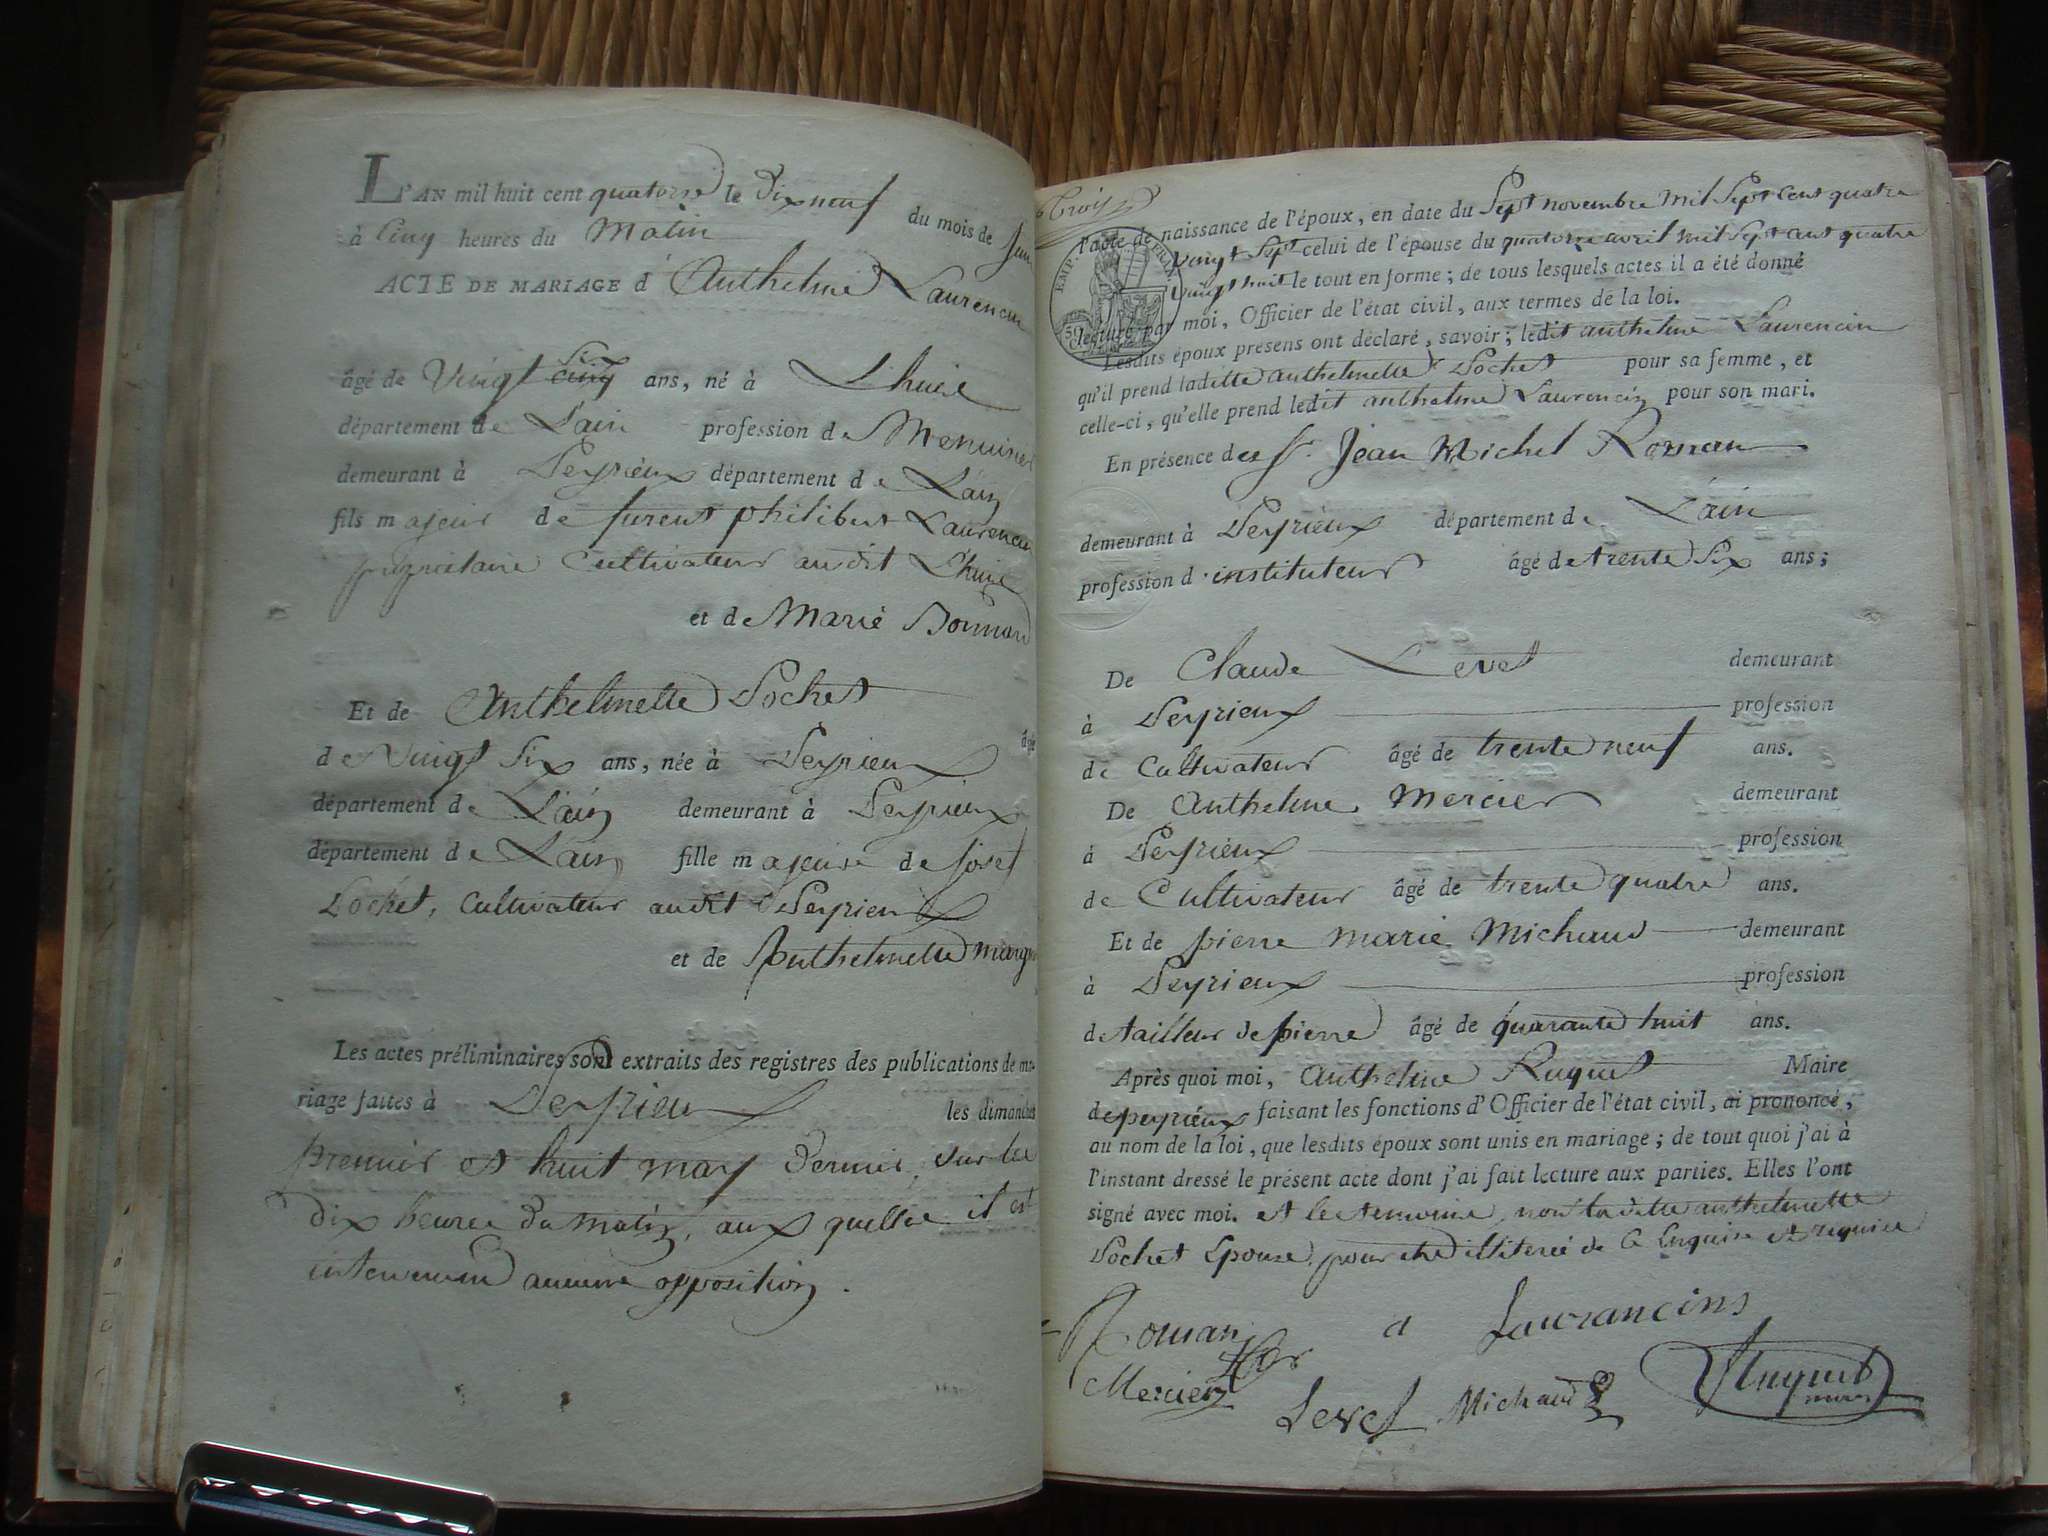 L'AN mil huit cent quatorze le dix neuf du mois de Juin
à Cinq heures du Matin
ACTE DE MARIAGE d' Anthelme Laurencin
six
âgé de Vingt cinq ans, né à Lhuis
département de L'ain profession de Menuisier
demeurant à Peyrieux département de L'ain
fils majeur de furent philibert Laurencin
propriétaire Cultivateur audit Lhuis
et de Marie Bonnard
Et de Anthelmette Pochet
âgée
de Vingt Six ans, née à Peyrieux
département de L'ain demeurant à Peyrieux
département de L'ain fille majeure de josef
Pochet, Cultivateur audit Peyrieux
et de Anthelmette
Les actes préliminaires sont extraits des registres des publications de ma-
riage faites à Peyrieux les dimanches
premier et huit may dernier, sur les
dix heures du matin, aux quelles il est
intervenu aucune opposition.
Trois
EMP. FRA
50
l'acte de naissance de l'époux, en date du Sept novembre mil Sept cent quatre
vingt Sept celui de l'épouse du quatorze avril mil Sept cent quatre
vingt huit le tout en forme; de tous lesquels actes il a été donné
lecture par moi, Officier de l'état civil, aux termes de la loi.
Lesdits époux présens ont déclaré, savoir; ledit anthelme Laurencin
qu'il prend laditte anthelmette Pochet pour sa femme, et
celle-ci, qu'elle prend ledit anthelme Laurencin pour son mari.
En présence des Sr. Jean Michel Roman
demeurant à Peyrieux département de L'ain
profession d'instituteur âgé de trente Six ans;
De Claude Levet demeurant
à Peyrieux profession
de Cultivateur âgé de trente neuf ans.
De Anthelme Mercier demeurant
à Peyrieux profession
de Cultivateur âgé de trente quatre ans.
Et de pierre marie Michaud demeurant
à Peyrieux profession
de tailleur de pierre âgé de quarante huit ans.
Après quoi moi, Anthelme Ruquet Maire
de peyrieux faisant les fonctions d'Officier de l'état civil, ai prononcé,
au nom de la loi, que lesdits époux sont unis en mariage; de tout quoi j'ai à
l'instant dressé le présent acte dont j'ai fait lecture aux parties. Elles l'ont
signé avec moi. et les temoins, non la ditte anthelmette
Pochet Epouse, pour etre illiteree de ce Enquise et requise
Roman a Laurancins
Mercier Levet Michaud Ruquet
maire